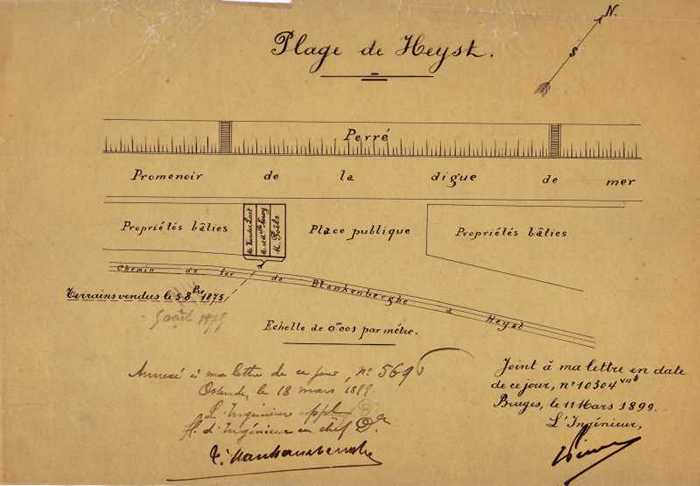 N.
S
Plage de Heyst.
Perré
Promenoir de la digue de mer
Propriétés bâties
Place publique
Propriétés bâties
Chemin de fer de Blankenberghe à Heyst
Terrains vendus le 5 8bre 1875
Echelle de 0m001 par mètre.
Annexé à ma lettre de ce jour, no 569
Ostende, le 18 mars 1899
L'Ingénieur ppl
d'Ingénieur en chef Dr
Joint à ma lettre en date
de ce jour, no 10304
Bruges, le 11 Mars 1899.
L'Ingénieur,